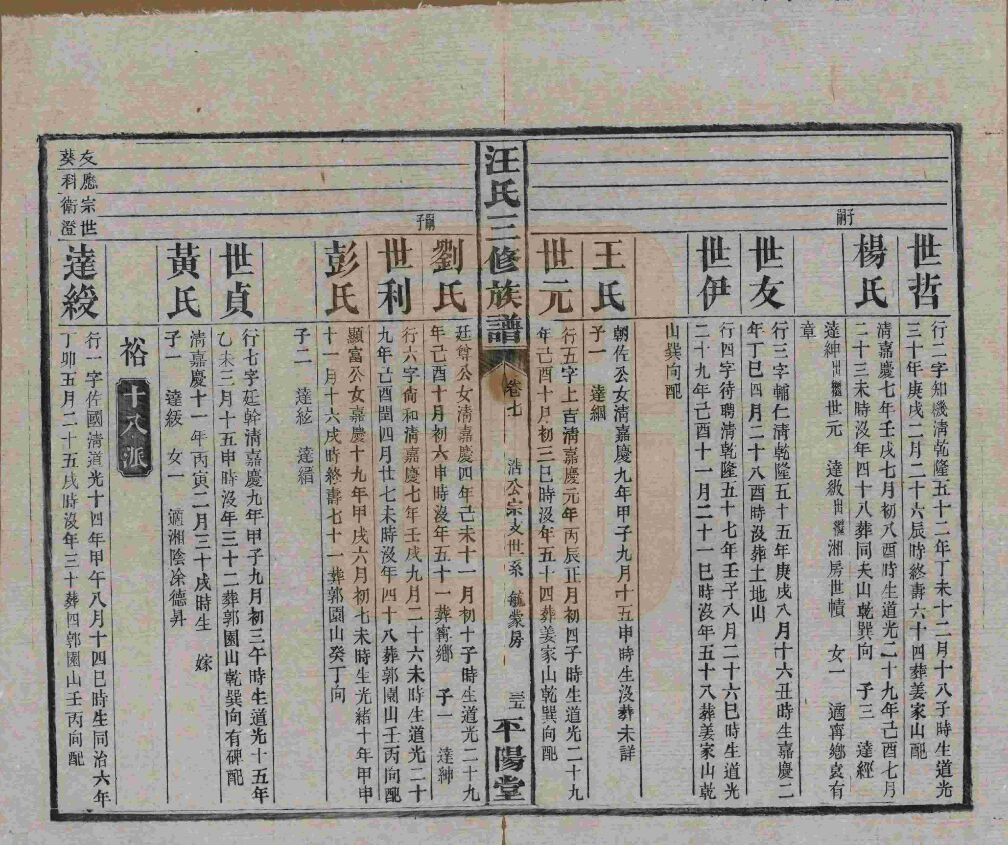 世哲
行二字知機清乾隆五十二年丁未十二月十八子時生道光
三十年庚戌二月二十六辰時終壽六十四葬姜家山配
楊氏
清嘉慶七年壬戌七月初八酉時生道光二十九年己酉七月
二十三未時沒年四十八葬同夫山乾巽向 子三 達經
達紳出繼世元 達級出繼湘房世幘 女一 適寧鄉袁有
章
子嗣
世友
行三字輔仁清乾隆五十五年庚戌八月十六丑時生嘉慶二
年丁巳四月二十八酉時沒葬土地山
世伊
行四字待聘清乾隆五十七年壬子八月二十六巳時生道光
二十九年己酉十一月二十一巳時沒年五十八葬姜家山乾
山巽向配
王氏
朝佐公女清嘉慶九年甲子九月十五申時生沒葬未詳
子一 達綱
世元
行五字上吉清嘉慶元年丙辰正月初四子時生道光二十九
年己酉十月初三巳時沒年五十四葬姜家山乾巽向配
汪氏三修族譜
卷七
浩公宗支世系 毓蒙房
三五
平陽堂
劉氏
廷尊公女清嘉慶四年己未十一月初十子時生道光二十九
年己酉十月初六申時沒年五十一葬寗鄉 子一 達紳
嗣子
世利
行六字尚和清嘉慶七年壬戌九月二十六未時生道光二十
九年己酉閏四月廿七未時沒年四十八葬郭園山壬丙向配
彭氏
顯富公女嘉慶十九年甲戌六月初七未時生光緒十年甲申
十一月十六戌時終壽七十一葬郭園山癸丁向
子二 達絃 達縉
世貞
行七字廷幹清嘉慶九年甲子九月初三午時生道光十五年
乙未三月十五申時沒年三十二葬郭園山乾巽向有碑配
黃氏
清嘉慶十一年丙寅二月三十戌時生 嫁
子一 達綬 女一 適湘陰涂德昇
裕
十八派
友應宗世
葵科衛澄
達綬
行一字佐國清道光十四年甲午八月十四巳時生同治六年
丁卯五月二十五戌時沒年三十葬四郭園山壬丙向配